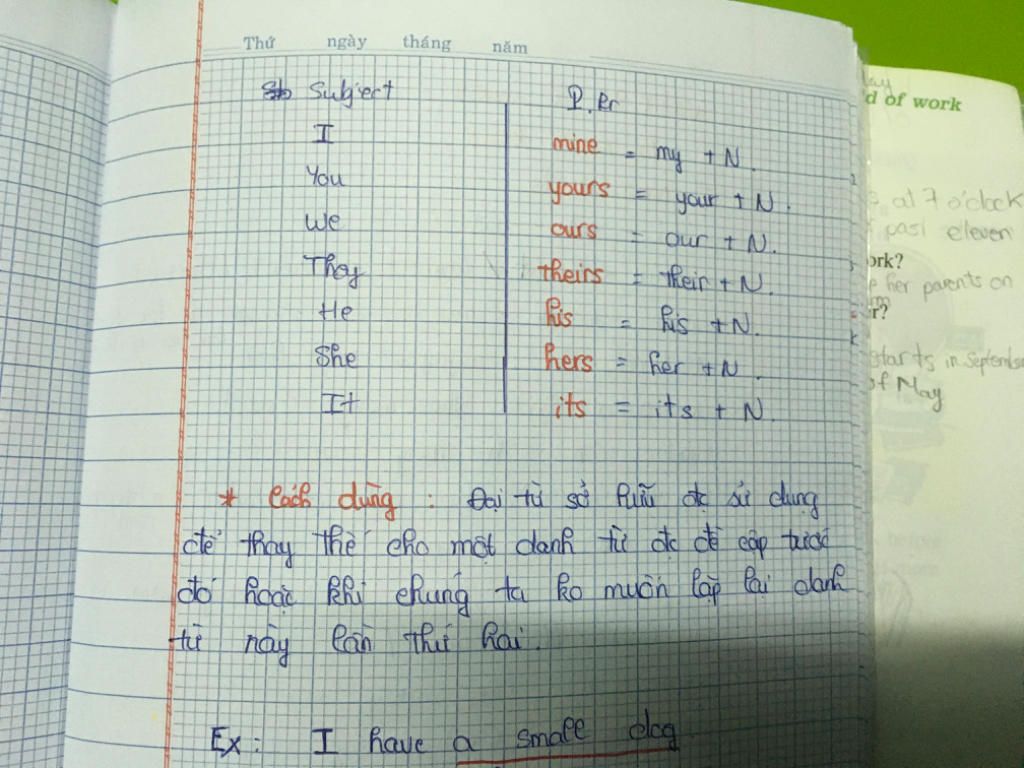 Thứ ngày tháng năm
Subject P.Pr
I mine = my + N.
You yours = your + N.
We ours = our + N.
They theirs = their + N.
He his = his + N.
She hers = her + N.
It its = its + N.
* Cách dùng : Đại từ sở hữu đc sử dụng
để thay thế cho một danh từ đc đề cập trước
đó hoặc khi chúng ta ko muốn lặp lại danh
từ này lần thứ hai.
Ex: I have a small dog
d of work
at 7 o'clock
past eleven
ork?
her parents on
r?
starts in September
of May